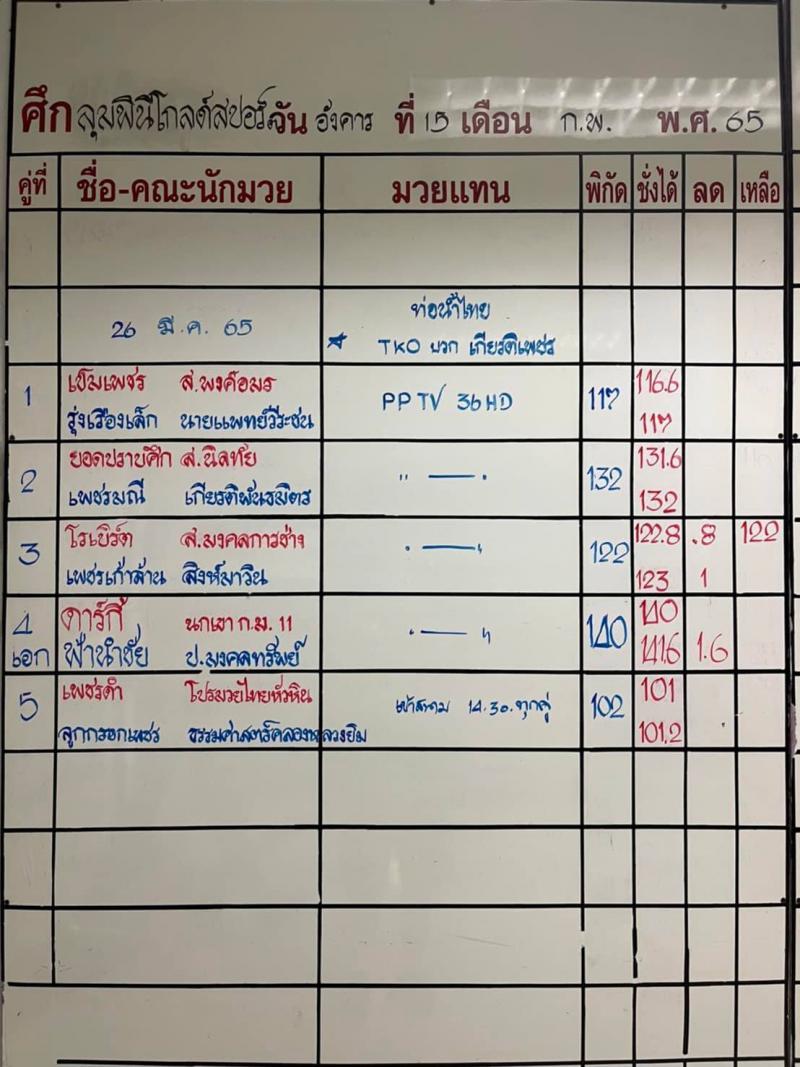 ศึก ลุมพินีโกลด์สปอร์ต วัน อังคาร ที่ 15 เดือน ก.พ. พ.ศ. 65
คู่ที่ ชื่อ-คณะนักมวย มวยแทน พิกัด ชั่งได้ ลด เหลือ
ท่อน้ำไทย
26 มี.ค. 65 ★ TKO บวก เกียรติเพชร
1 เข้มเพชร ส.พงศ์อมร PPTV 36HD 117 116.6
รุ่งเรืองเล็ก นายแพทย์วีระชน 117
2 ยอดปราบศึก ส.นิลทัย " — " 132 131.6
เพชรมณี เกียรติพันธมิตร 132
3 โรเบิร์ต ส.มงคลการช่าง " — " 122 122.8 .8 122
เพชรเก้าล้าน สิงห์มาวิน 123 1
4 ดาร์กี้ นกเขา ก.ม. 11 " — " 140 140
เอก ฟ้านำชัย ป.มงคลทรัพย์ 141.6 1.6
5 เพชรดำ โปรมวยไทยหัวหิน 14.30. ทุกคู่ 102 101
ลูกกรอกเพชร ธรรมศาสตร์คลองหลวงยิม 101.2